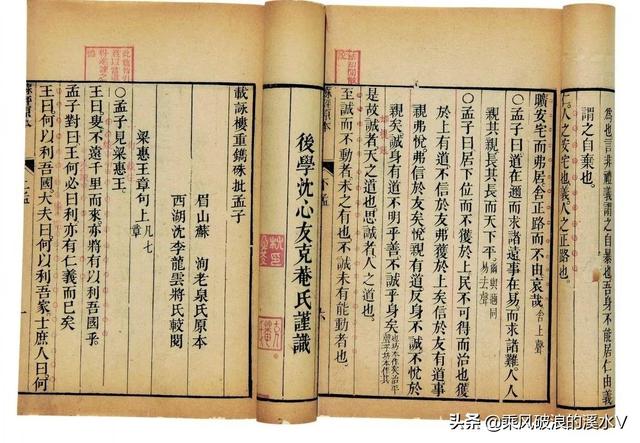 爲也言非禮義謂之自暴也吾身不能居仁由義
謂之自棄也。
仁人之安宅也義人之正路也。
曠安宅而弗居舍正路而不由哀哉 舍上聲
○孟子曰道在邇而求諸遠事在易而求諸難人人
親其親長其長而天下平 邇與爾同 易去聲
○孟子曰居下位而不獲於上民不可得而治也獲
於上有道不信於友弗獲於上矣信於友有道事
親弗悅弗信於友矣悅親有道反身不誠不悅於
親矣誠身有道不明乎善不誠乎身矣
是故誠者天之道也思誠者人之道也。
至誠而不動者未之有也不誠未有能動者也。
蘇評原本 下孟
後學沈心友克菴氏謹識
載詠樓重鐫硃批孟子
眉山蘇 洵老泉氏原本
西湖沈李龍雲將氏較閱
梁惠王章句上 凡七章
○孟子見梁惠王。
王曰叟不遠千里而來亦將有以利吾國乎。
孟子對曰王何必曰利亦有仁義而已矣
王曰何以利吾國大夫曰何以利吾家士庶人曰何
蘇評原本 上孟 一
头条 @乘风破浪的溪水V